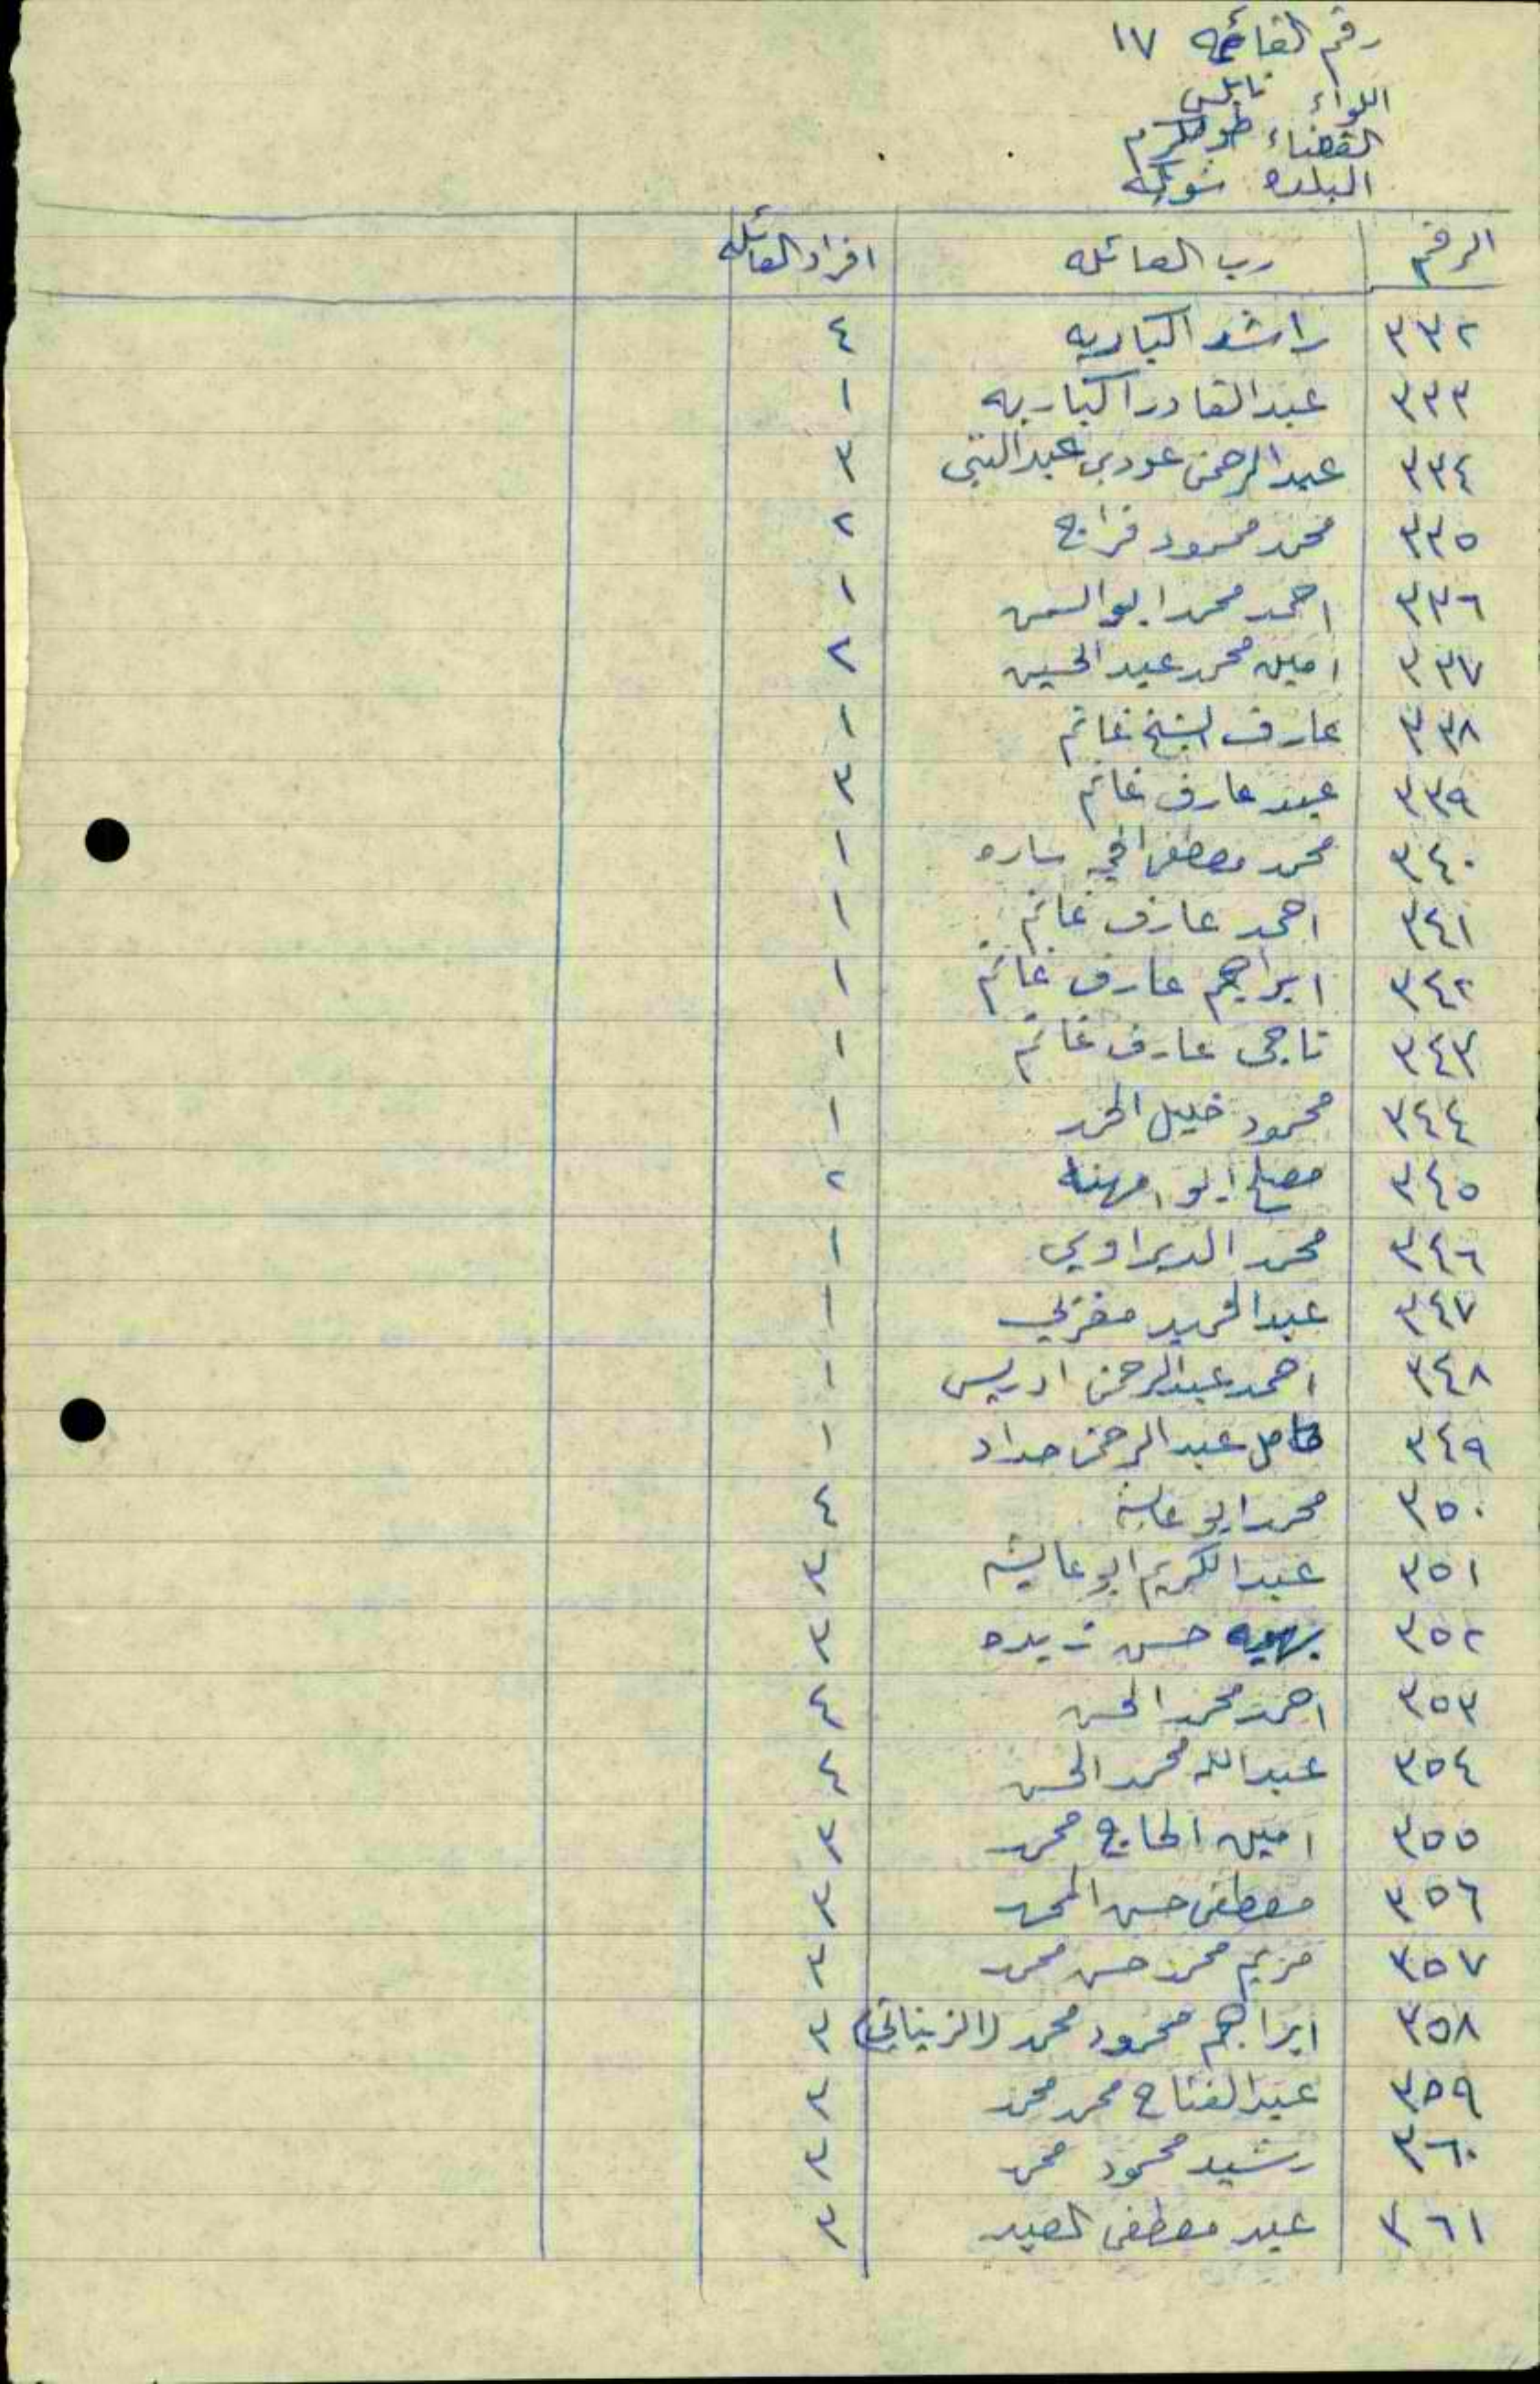 رقم القائمه ١٧
اللواء نابلس
القضاء طولكرم
البلده شويكه
الرقم رب العائله افراد العائله
٣٣٢ راشد الكباريه ٤
٣٣٣ عبد القادر الكباريه ١
٣٣٤ عبد الرحمن عودي عبد النبي ٣
٣٣٥ محمد محمود فراج ٢
٣٣٦ احمد محمد ابو السمن ١
٣٣٧ امين محمد عبد الحسين ٢
٣٣٨ عارف الشيخ غانم ١
٣٣٩ عبد عارف غانم ٣
٣٤٠ محمد مصطفى ساره ١
٣٤١ احمد عارف غانم ١
٣٤٢ ابراهيم عارف غانم ١
٣٤٣ ناجي عارف غانم ١
٣٤٤ محمود خليل المحمد ١
٣٤٥ مصلح ابو امهنا ٢
٣٤٦ محمد الديراوي ١
٣٤٧ عبد الحميد مغربي ١
٣٤٨ احمد عبد الرحمن ادريس ١
٣٤٩ كامل عبد الرحمن حداد ١
٣٥٠ محمد ابو عايشه ٤
٣٥١ عبد الكريم ابو عايشه ٣
٣٥٢ بهيه حسن زيده ٣
٣٥٣ احمد محمد الحسن ٤
٣٥٤ عبد الله محمد الحسن ٤
٣٥٥ امين الحاج محمد ٣
٣٥٦ مصطفى حسن المحمد ٣
٣٥٧ مريم محمد حسن محمد ٣
٣٥٨ ابراهيم محمود محمد (الزيناتي) ٣
٣٥٩ عبد الفتاح محمد محمد ٣
٣٦٠ رشيد محمود محمد ٣
٣٦١ عبد مصطفى العبد ٣